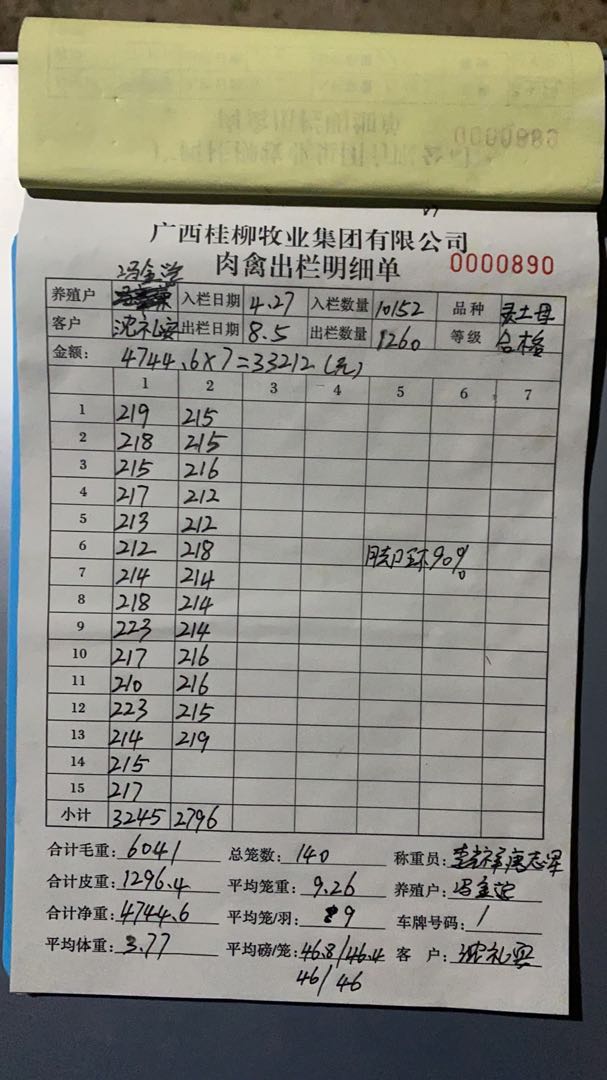 0000889
广西桂柳牧业集团有限公司
肉禽出栏明细单 0000890
冯金送
养殖户 入栏日期 4.27 入栏数量 10152 品种 灵土母
客户 沈礼安 出栏日期 8.5 出栏数量 1260 等级 合格
金额: 4744.6×7=33212(元)
1 2 3 4 5 6 7
1 219 215
2 218 215
3 215 216
4 217 212
5 213 212
6 212 218 脚环90%
7 214 214
8 218 214
9 223 214
10 217 216
11 210 216
12 223 215
13 214 219
14 215
15 217
小计 3245 2796
合计毛重: 6041 总笼数: 140 称重员:
合计皮重: 1296.4 平均笼重: 9.26 养殖户: 冯金送
合计净重: 4744.6 平均笼/羽: 9 车牌号码: 1
平均体重: 3.77 平均磅/笼: 46.8/46.4 客 户: 沈礼安
46/46